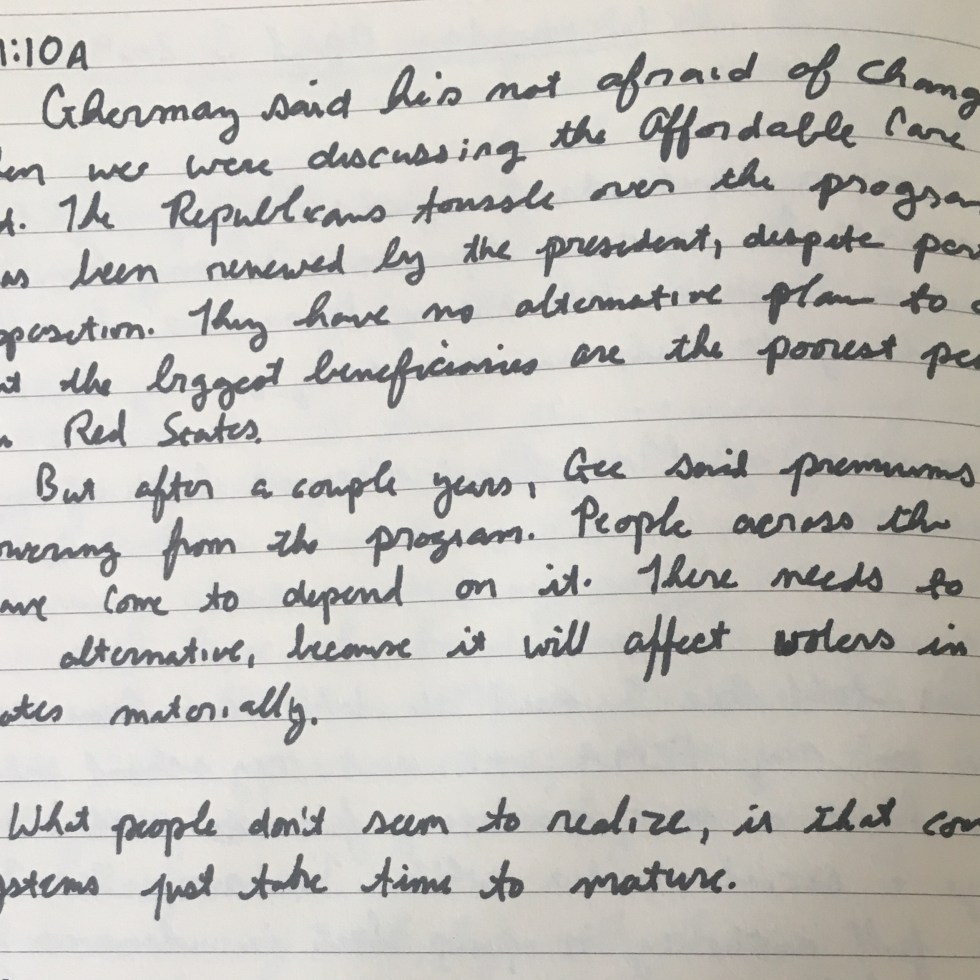 1:10A
Ghermay said he's not afraid of chang
en we were discussing the Affordable Care
t. The Republicans tousle over the progra
as been renewed by the president, despite par
pposition. They have no alternative plan to
t the biggest beneficiaries are the poorest pe
n Red States.
But after a couple years, Gee said premiums
owering from the program. People across the
ave come to depend on it. There needs to
alternative, because it will affect voters in
ates materially.
What people don't seem to realize, is that com
ystems just take time to mature.